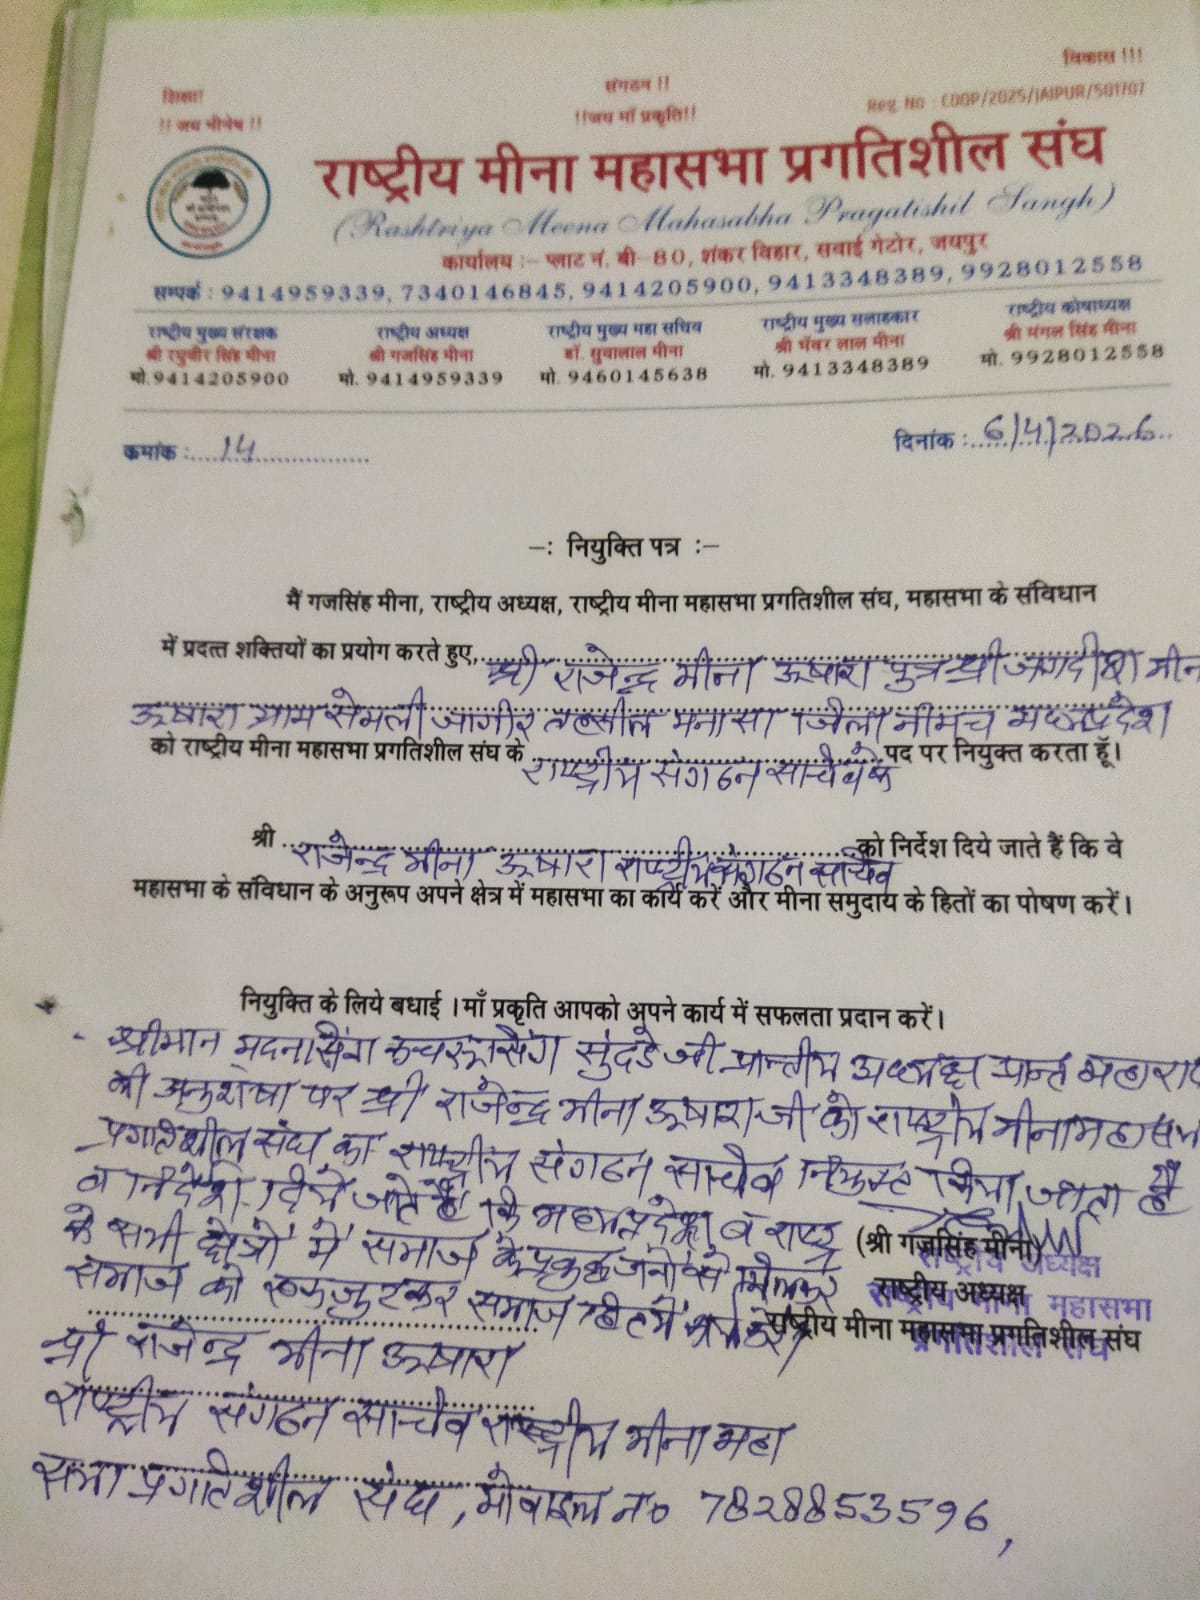 शिक्षा!
संगठन !!
विकास !!!
!! जय मीनेष !!
!!जय माँ प्रकृति!!
Reg. No : COOP/2025/JAIPUR/501707
राष्ट्रीय मीना महासभा प्रगतिशील संघ
(Rashtriya Meena Mahasabha Pragatishil Sangh)
कार्यालय :- प्लाट नं. बी-80, शंकर विहार, सवाई गेटोर, जयपुर
सम्पर्क : 9414959339, 7340146845, 9414205900, 9413348389, 9928012558
राष्ट्रीय मुख्य संरक्षक
श्री रघुवीर सिंह मीना
मो.9414205900
राष्ट्रीय अध्यक्ष
श्री गजसिंह मीना
मो. 9414959339
राष्ट्रीय मुख्य महा सचिव
डॉ. सुवालाल मीना
मो. 9460145638
राष्ट्रीय मुख्य सलाहकार
श्री भंवर लाल मीना
मो. 9413348389
राष्ट्रीय कोषाध्यक्ष
श्री मंगल सिंह मीना
मो. 9928012558
कमांक :....14....................
दिनांक :..6/4/2026...
-: नियुक्ति पत्र :-
मैं गजसिंह मीना, राष्ट्रीय अध्यक्ष, राष्ट्रीय मीना महासभा प्रगतिशील संघ, महासभा के संविधान
में प्रदत्त शक्तियों का प्रयोग करते हुए, श्री राजेन्द्र मीना ऊषारा पुत्र श्री जगदीश मीन
ऊषारा ग्राम सेमली जागीर तहसील मनासा जिला नीमच मध्यप्रदेश
को राष्ट्रीय मीना महासभा प्रगतिशील संघ के राष्ट्रीय संगठन सचिव के पद पर नियुक्त करता हूँ।
श्री राजेन्द्र मीना ऊषारा राष्ट्रीय संगठन सचिव को निर्देश दिये जाते हैं कि वे
महासभा के संविधान के अनुरूप अपने क्षेत्र में महासभा का कार्य करें और मीना समुदाय के हितों का पोषण करें।
नियुक्ति के लिये बधाई। माँ प्रकृति आपको अपने कार्य में सफलता प्रदान करें।
श्रीमान मदनसिंग कचरूसिंग सुंदर्डे जी प्रान्तीय अध्यक्ष प्रान्त महारा
की अनुशंषा पर श्री राजेन्द्र मीना ऊषारा जी को राष्ट्रीय मीना महासभ
प्रगतिशील संघ का राष्ट्रीय संगठन सचिव नियुक्त किया जाता है
व निर्देश दिये जाते है कि मध्यप्रदेश व राष्ट्र
के सभी क्षेत्रों में समाज के प्रबुद्धजनों से मिलकर
समाज को एकजुटकर समाज हित में कार्य करे
(श्री गजसिंह मीना)
राष्ट्रीय अध्यक्ष
राष्ट्रीय मीना महासभा प्रगतिशील संघ
राष्ट्रीय अध्यक्ष
राष्ट्रीय मीना महासभा
प्रगतिशील संघ
श्री राजेन्द्र मीना ऊषारा
राष्ट्रीय संगठन सचिव राष्ट्रीय मीना महा
सभा प्रगतिशील संघ, मोबाइल नं० 7828853596,